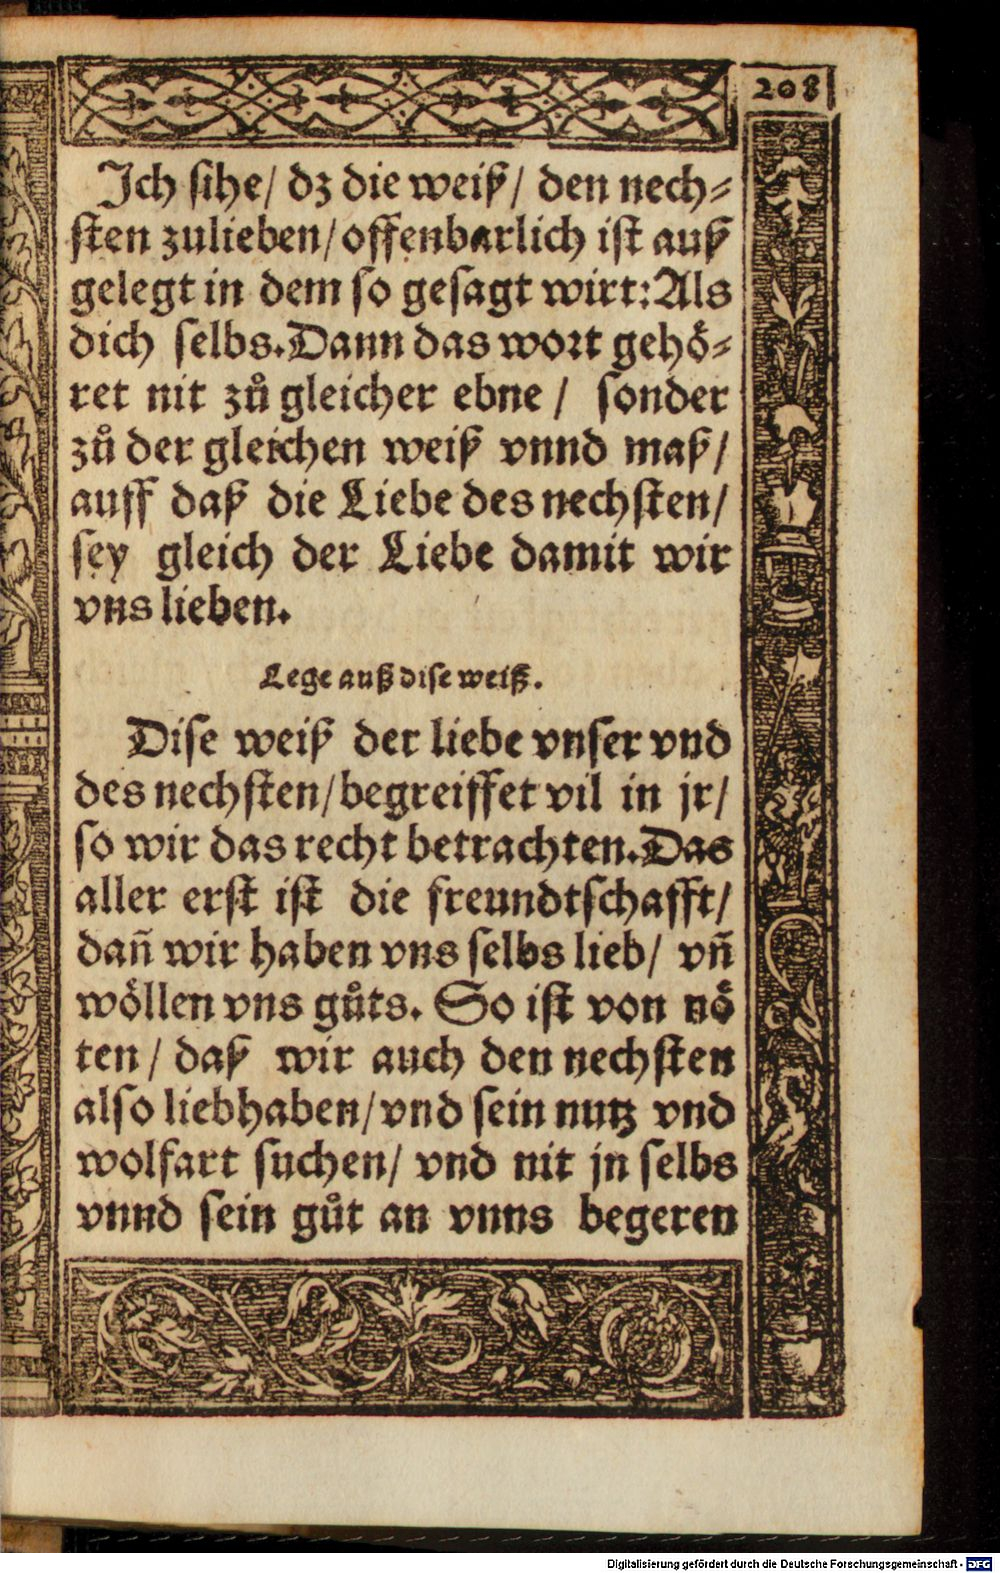 208
Ich sihe/ dz die weiß/ den nech⸗
sten zulieben/ offenbarlich ist auß
gelegt in dem so gesagt wirt: Als
dich selbs. Dann das wort gehö⸗
ret nit zů gleicher ebne / sonder
zů der gleichen weiß vnnd maß/
auff daß die Liebe des nechsten/
sey gleich der Liebe damit wir
vns lieben.
Lege auß dise weiß.
Dise weiß der liebe vnser vnd
des nechsten/ begreiffet vil in jr/
so wir das recht betrachten. Das
aller erst ist die freundtschafft/
dañ wir haben vns selbs lieb/ vñ
wöllen vns gůts. So ist von nö
ten / daß wir auch den nechsten
also liebhaben/ vnd sein nutz vnd
wolfart suchen/ vnd nit jn selbs
vnnd sein gůt an vnns begeren
Digitalisierung gefördert durch die Deutsche Forschungsgemeinschaft - DFG